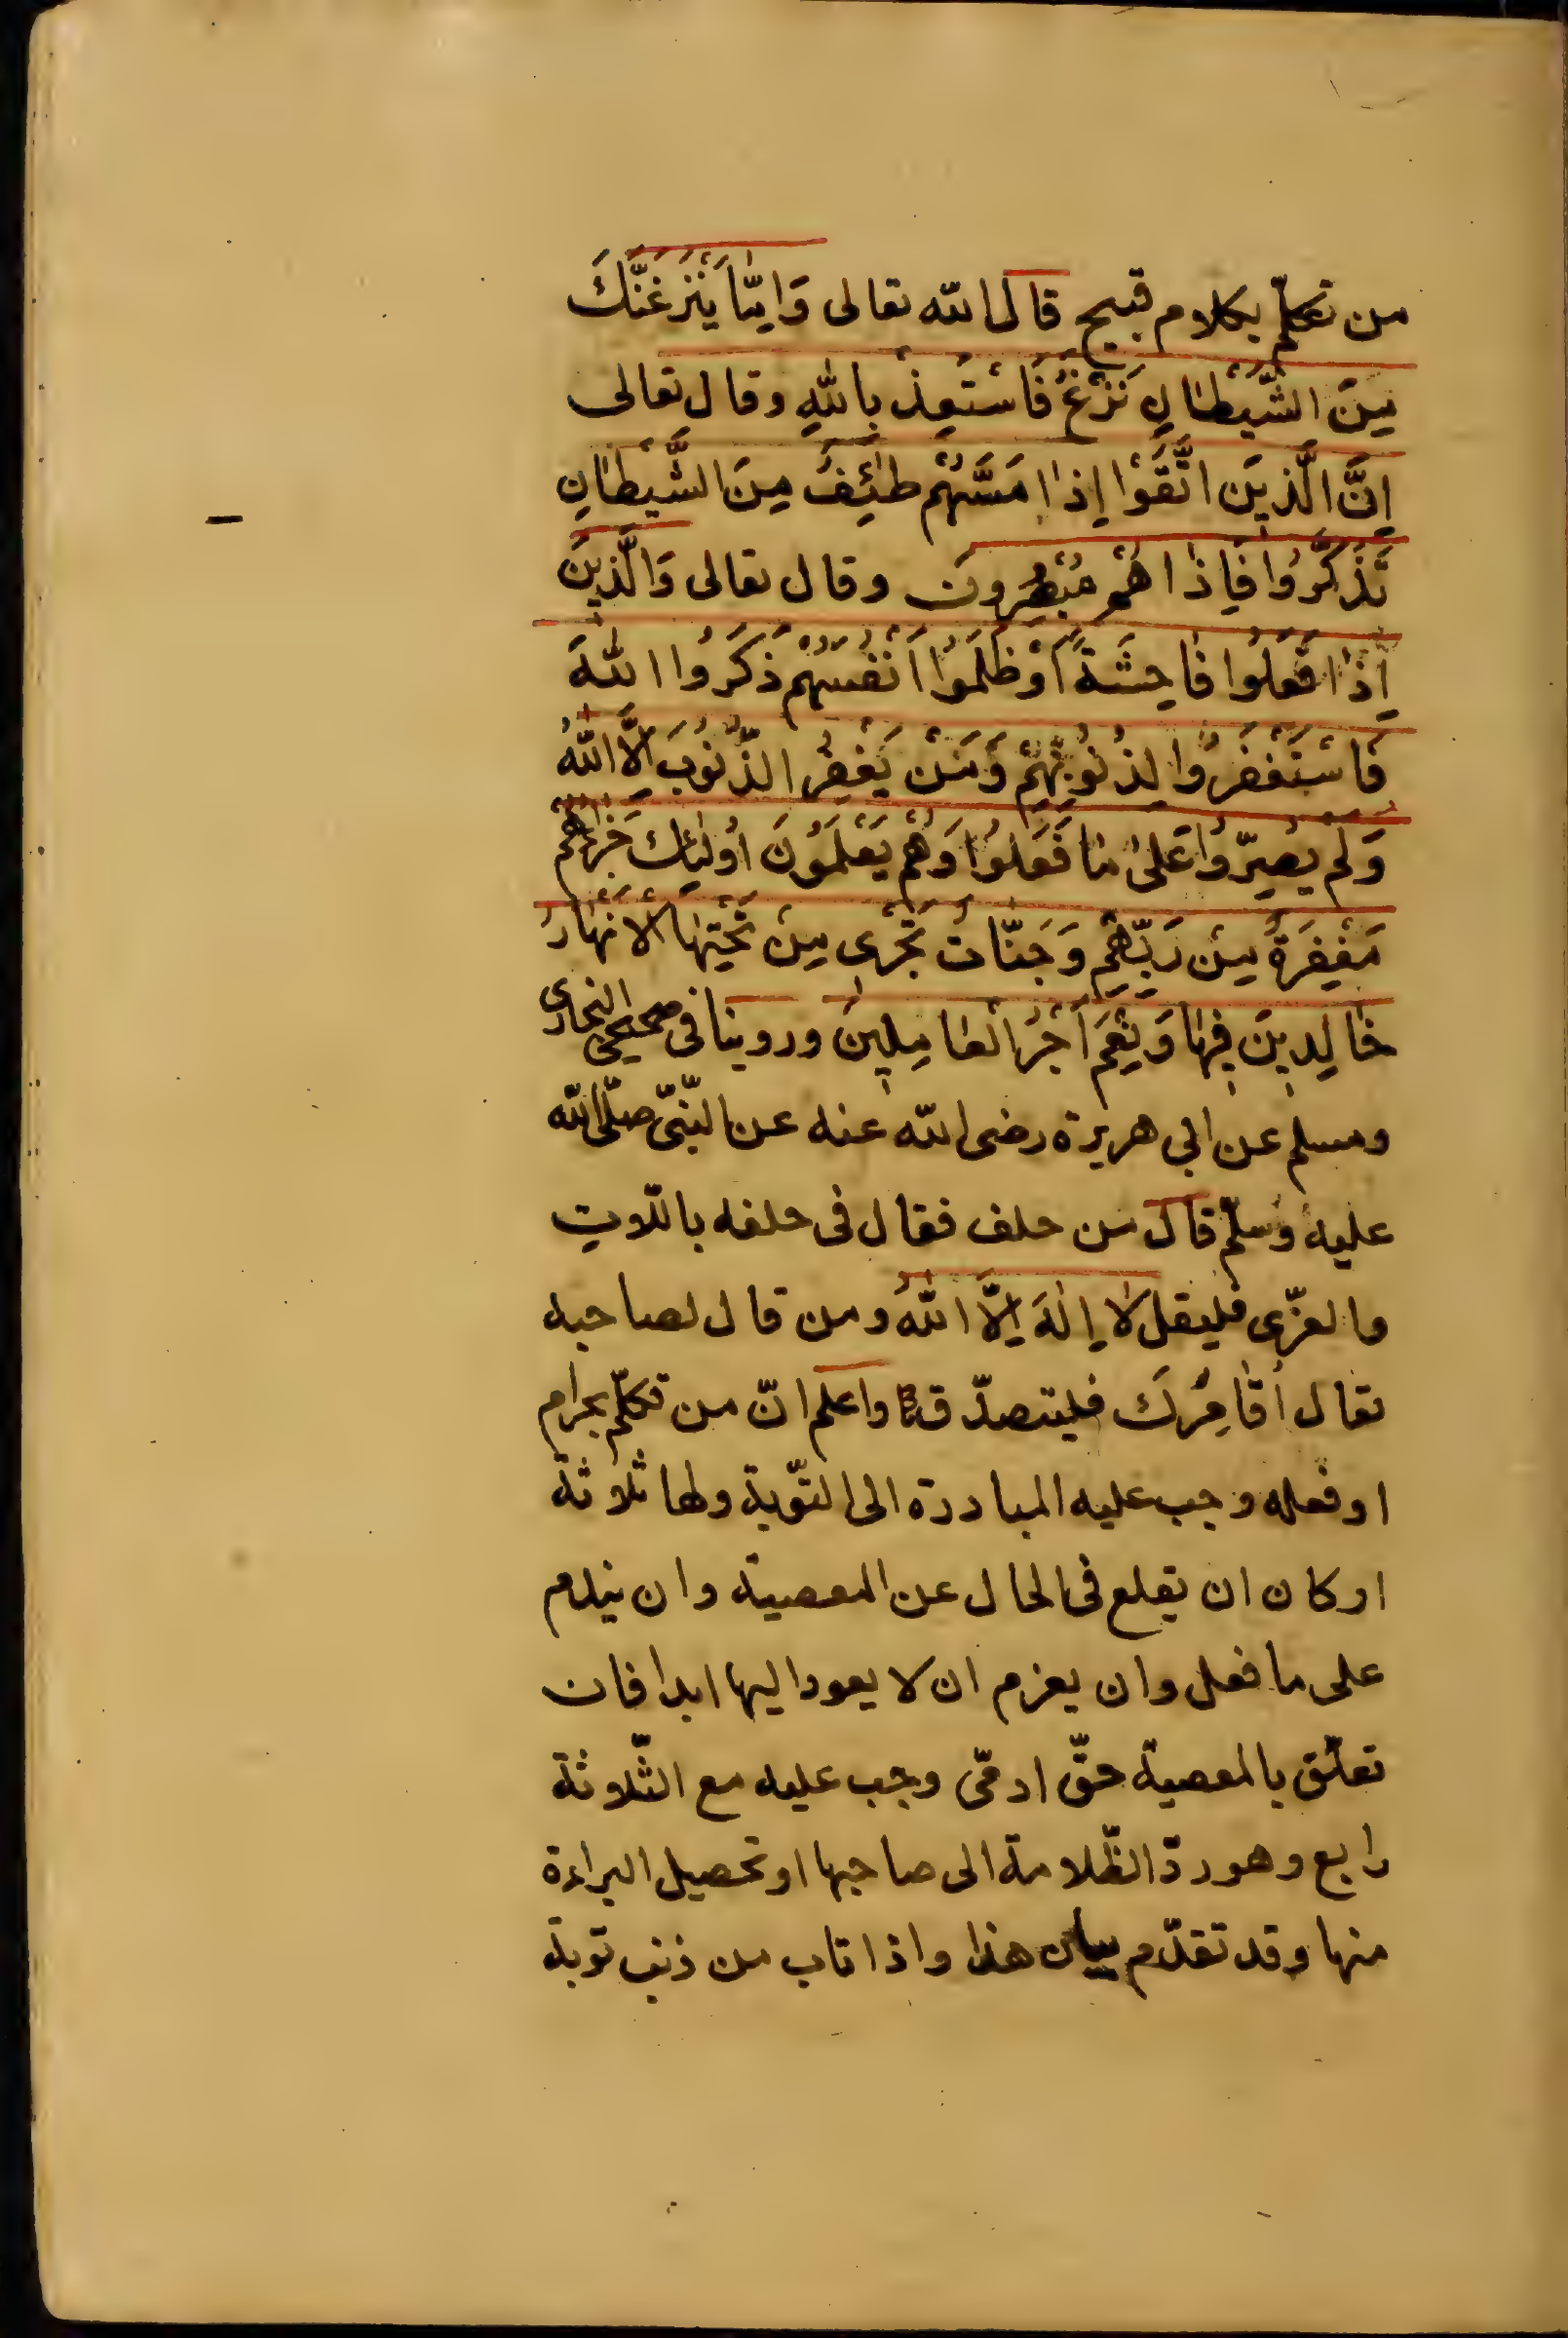 من تكلّم بكلام قبيح قال الله تعالى وَاِمَّا يَنْزَغَنَّكَ
مِنَ الشَّيْطَانِ نَزْغٌ فَاسْتَعِذْ بِاللهِ وقال تعالى
اِنَّ الَّذِينَ اتَّقَوْا اِذَا مَسَّهُمْ طٰئِفٌ مِنَ الشَّيْطَانِ
تَذَكَّرُوا فَاِذَا هُمْ مُبْصِرُونَ وقال تعالى وَالَّذِينَ
اِذَا فَعَلُوا فَاحِشَةً اَوْ ظَلَمُوا اَنْفُسَهُمْ ذَكَرُوا اللهَ
فَاسْتَغْفَرُوا لِذُنُوبِهِمْ وَمَنْ يَغْفِرُ الذُّنُوبَ اِلَّا اللهُ
وَلَمْ يُصِرُّوا عَلَى مَا فَعَلُوا وَهُمْ يَعْلَمُونَ اُولٰئِكَ جَزَاؤُهُمْ
مَغْفِرَةٌ مِنْ رَبِّهِمْ وَجَنَّاتٌ تَجْرِى مِنْ تَحْتِهَا الْاَنْهَارُ
خَالِدِينَ فِيهَا وَنِعْمَ اَجْرُ الْعَامِلِينَ وروينا فى صحيحى البخارى
ومسلم عن ابى هريرة رضى الله عنه عن النّبىّ صلّى الله
عليه وسلّم قال من حلف فقال فى حلفه باللّاتِ
والعزّى فليقل لَا اِلٰهَ اِلَّا اللهُ ومن قال لصاحبه
تعال اُقَامِرْكَ فليتصدّق واعلم انّ من تكلّم بحرام
او فعله وجب عليه المبادرة الى التّوبة ولها ثلاثة
اركان ان يقلع فى الحال عن المعصية وان يندم
على ما فعل وان يعزم ان لا يعود اليها ابدا فان
تعلّق بالمعصية حقّ ادمّى وجب عليه مع الثّلاثة
رابع وهو ردّ الظّلامة الى صاحبها او تحصيل البراءة
منها وقد تقدّم بيان هذا واذا تاب من ذنب توبة